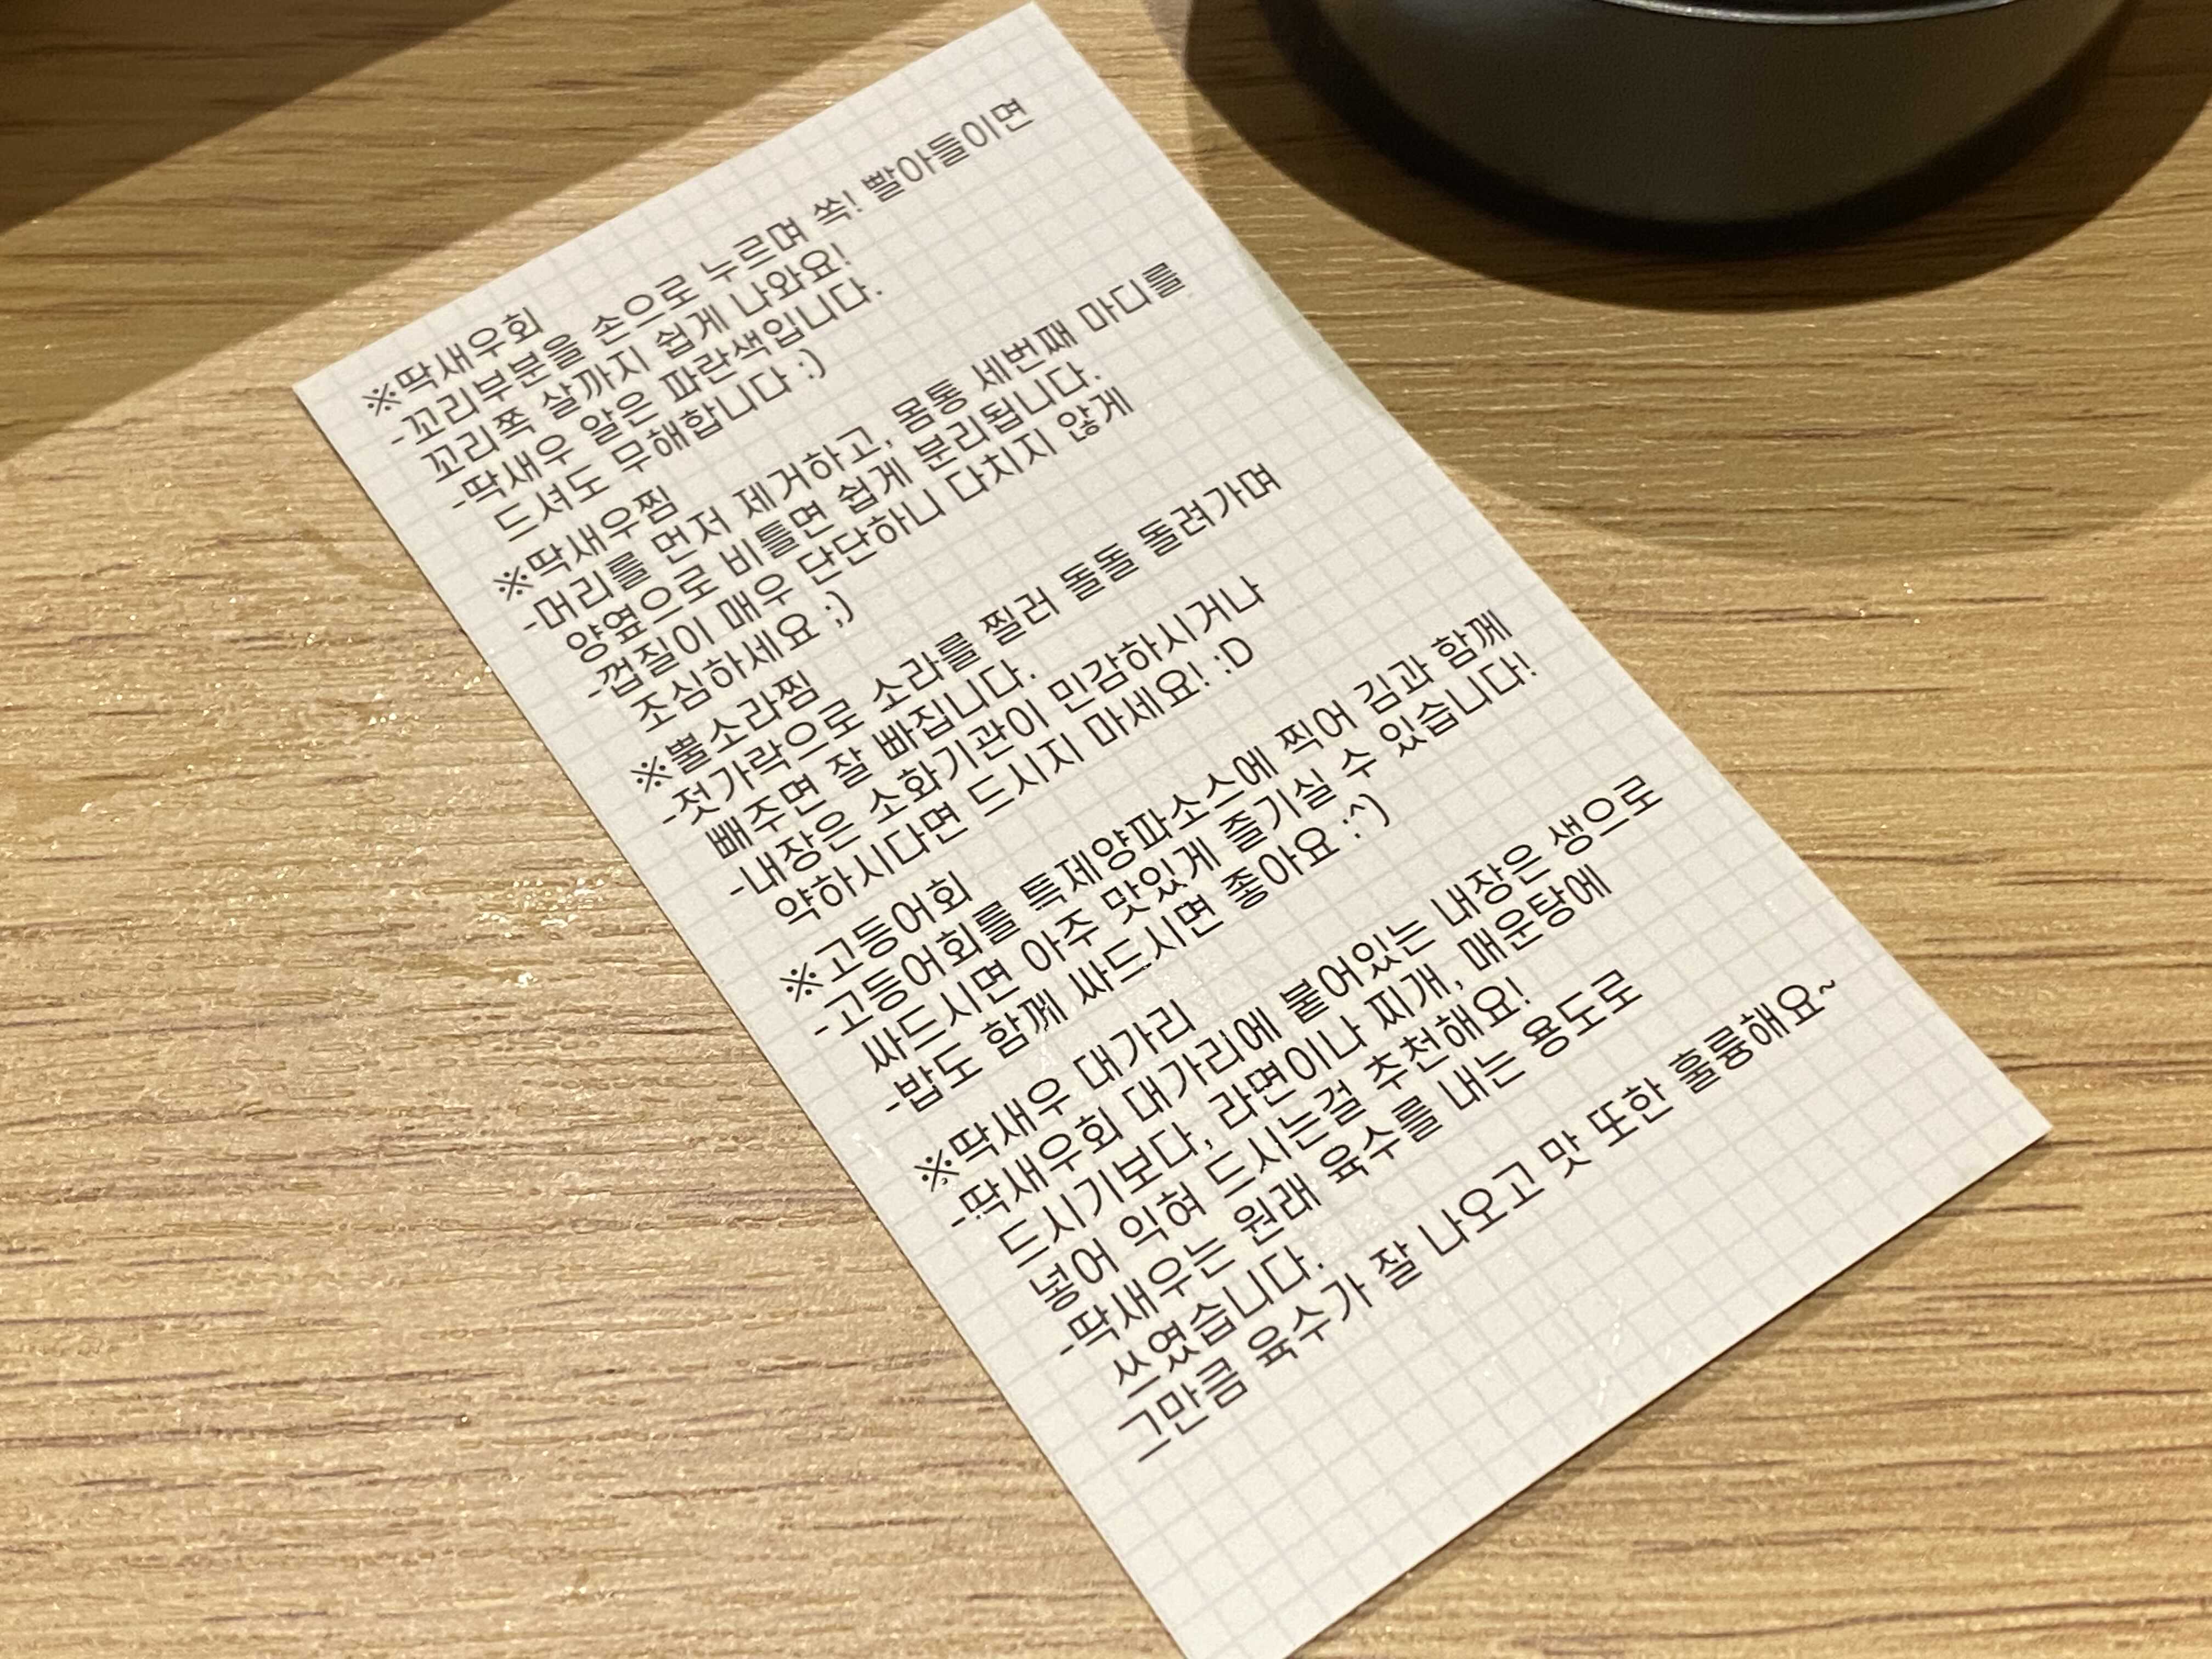 ※딱새우회
-꼬리부분을 손으로 누르며 쏙! 빨아들이면
꼬리쪽 살까지 쉽게 나와요!
-딱새우 알은 파란색입니다.
드셔도 무해합니다 :)
※딱새우찜
-머리를 먼저 제거하고, 몸통 세번째 마디를
양옆으로 비틀면 쉽게 분리됩니다.
-껍질이 매우 단단하니 다치지 않게
조심하세요 ;)
※뿔소라찜
-젓가락으로 소라를 찔러 돌돌 돌려가며
빼주면 잘 빠집니다.
-내장은 소화기관이 민감하시거나
약하시다면 드시지 마세요! :D
※고등어회
-고등어회를 특제양파소스에 찍어 김과 함께
싸드시면 아주 맛있게 즐기실 수 있습니다!
-밥도 함께 싸드시면 좋아요 :^)
※딱새우 대가리
-딱새우회 대가리에 붙어있는 내장은 생으로
드시기보다, 라면이나 찌개, 매운탕에
넣어 익혀 드시는걸 추천해요!
-딱새우는 원래 육수를 내는 용도로
쓰였습니다.
그만큼 육수가 잘 나오고 맛 또한 훌륭해요~